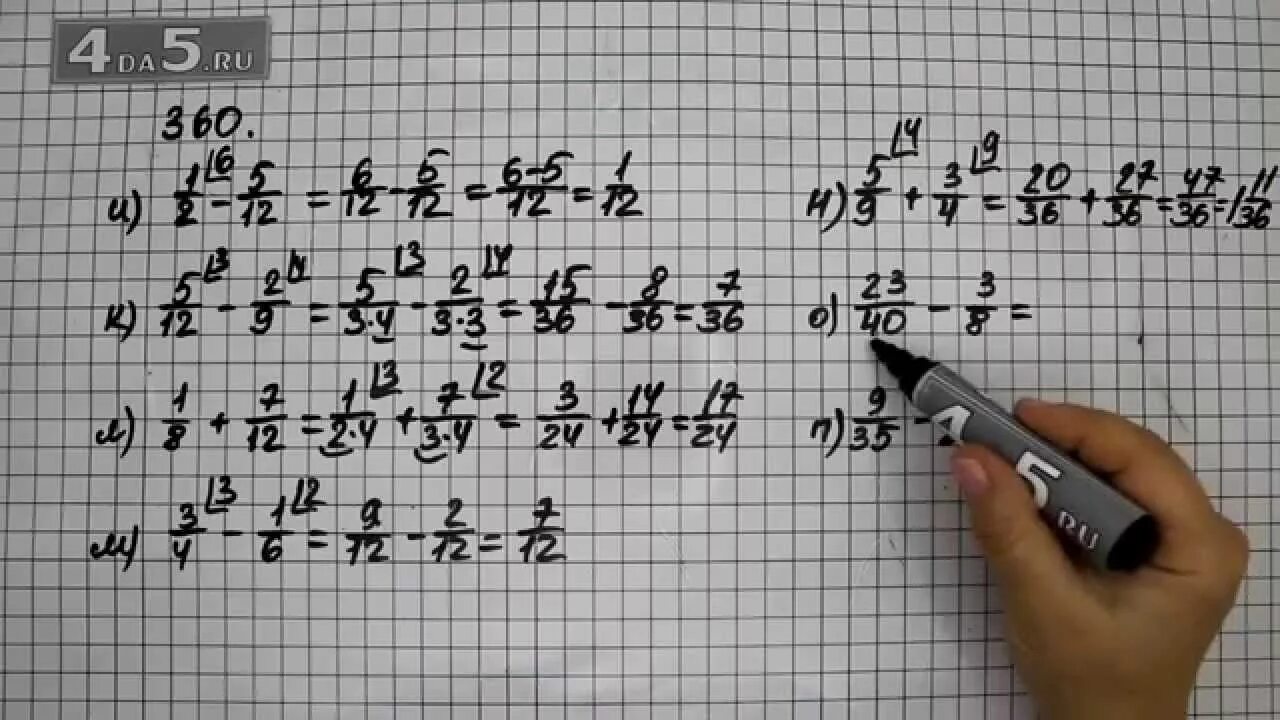 4DA5.RU
360.
и) 1/2 ⌊6 - 5/12 = 6/12 - 5/12 = 6-5/12 = 1/12
к) 5/12 ⌊3 - 2/9 ⌊4 = 5/3·4 ⌊3 - 2/3·3 ⌊4 = 15/36 - 8/36 = 7/36
л) 1/8 + 7/12 = 1/2·4 ⌊3 + 7/3·4 ⌊2 = 3/24 + 14/24 = 17/24
м) 3/4 ⌊3 - 1/6 ⌊2 = 9/12 - 2/12 = 7/12
н) 5/9 ⌊4 + 3/4 ⌊9 = 20/36 + 27/36 = 47/36 = 1 11/36
о) 23/40 - 3/8 =
п) 9/35 -
4 5.RU